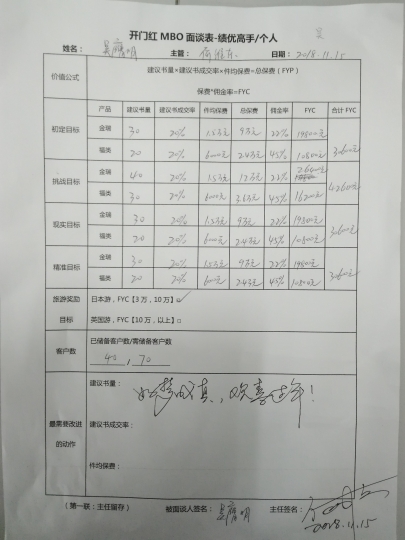 开门红 MBO 面谈表-绩优高手/个人
姓名： 主管： 日期：2018.11.15
价值公式 建议书量×建议书成交率×件均保费=总保费（FYP）
保费*佣金率=FYC
产品 建议书量 建议书成交率 件均保费 总保费 佣金率 FYC 合计 FYC
初定目标 金瑞 30 20% 1.5万元 9万元 22% 19800元 30600元
福类 20 20% 6000元 2.4万元 45% 10800元
挑战目标 金瑞 40 20% 1.5万元 12万元 22% 26400元 42600元
福类 30 20% 6000元 3.6万元 45% 16200元
现实目标 金瑞 30 20% 1.5万元 9万元 22% 19800元 30600元
福类 20 20% 6000元 2.4万元 45% 10800元
精准目标 金瑞 30 20% 1.5万元 9万元 22% 19800元 30600元
福类 20 20% 6000元 2.4万元 45% 10800元
旅游奖励 日本游，FYC【3万，10万】□
目标 英国游，FYC【10万，以上】□
客户数 已储备客户数/需储备客户数
40，70
最需要改进的动作 建议书量：
梦成真，欢喜过年！
建议书成交率：
件均保费：
（第一联：主任留存） 被面谈人签名： 主任签名：
2018.11.15